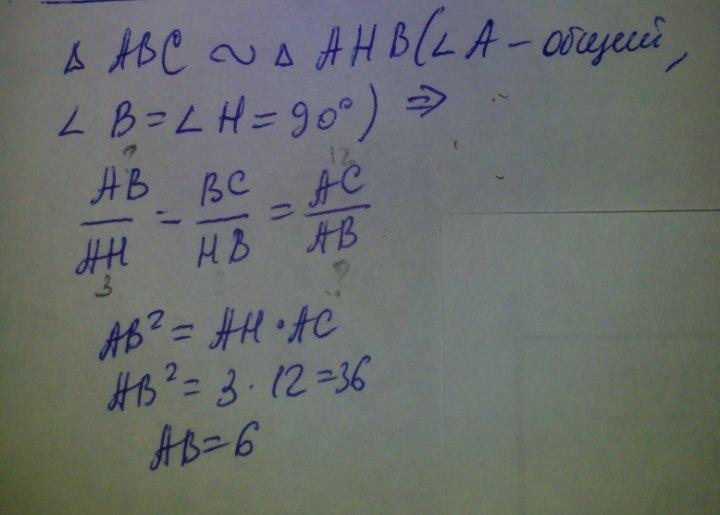 Δ ABC ∼ Δ AHB (∠A – общий,
∠ B = ∠ H = 90°) ⇒
? 12
AB/AH = BC/HB = AC/AB
3 ?
AB² = AH · AC
AB² = 3 · 12 = 36
AB = 6